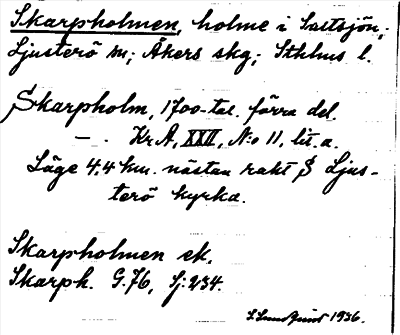 Skarpholmen, holme i Saltsjön,;
Ljusterö sn; Åkers skg; Sthlms l.
Skarpholm, 1700-tal. förra del.
— . Kr A, XXII, N:o 11, lit. a.
Läge 4,4 km. nästan rakt S Ljus-
terö kyrka.
Skarpholmen ek.
Skarph. G.76, Sj:234.
S. Lundquist 1936.